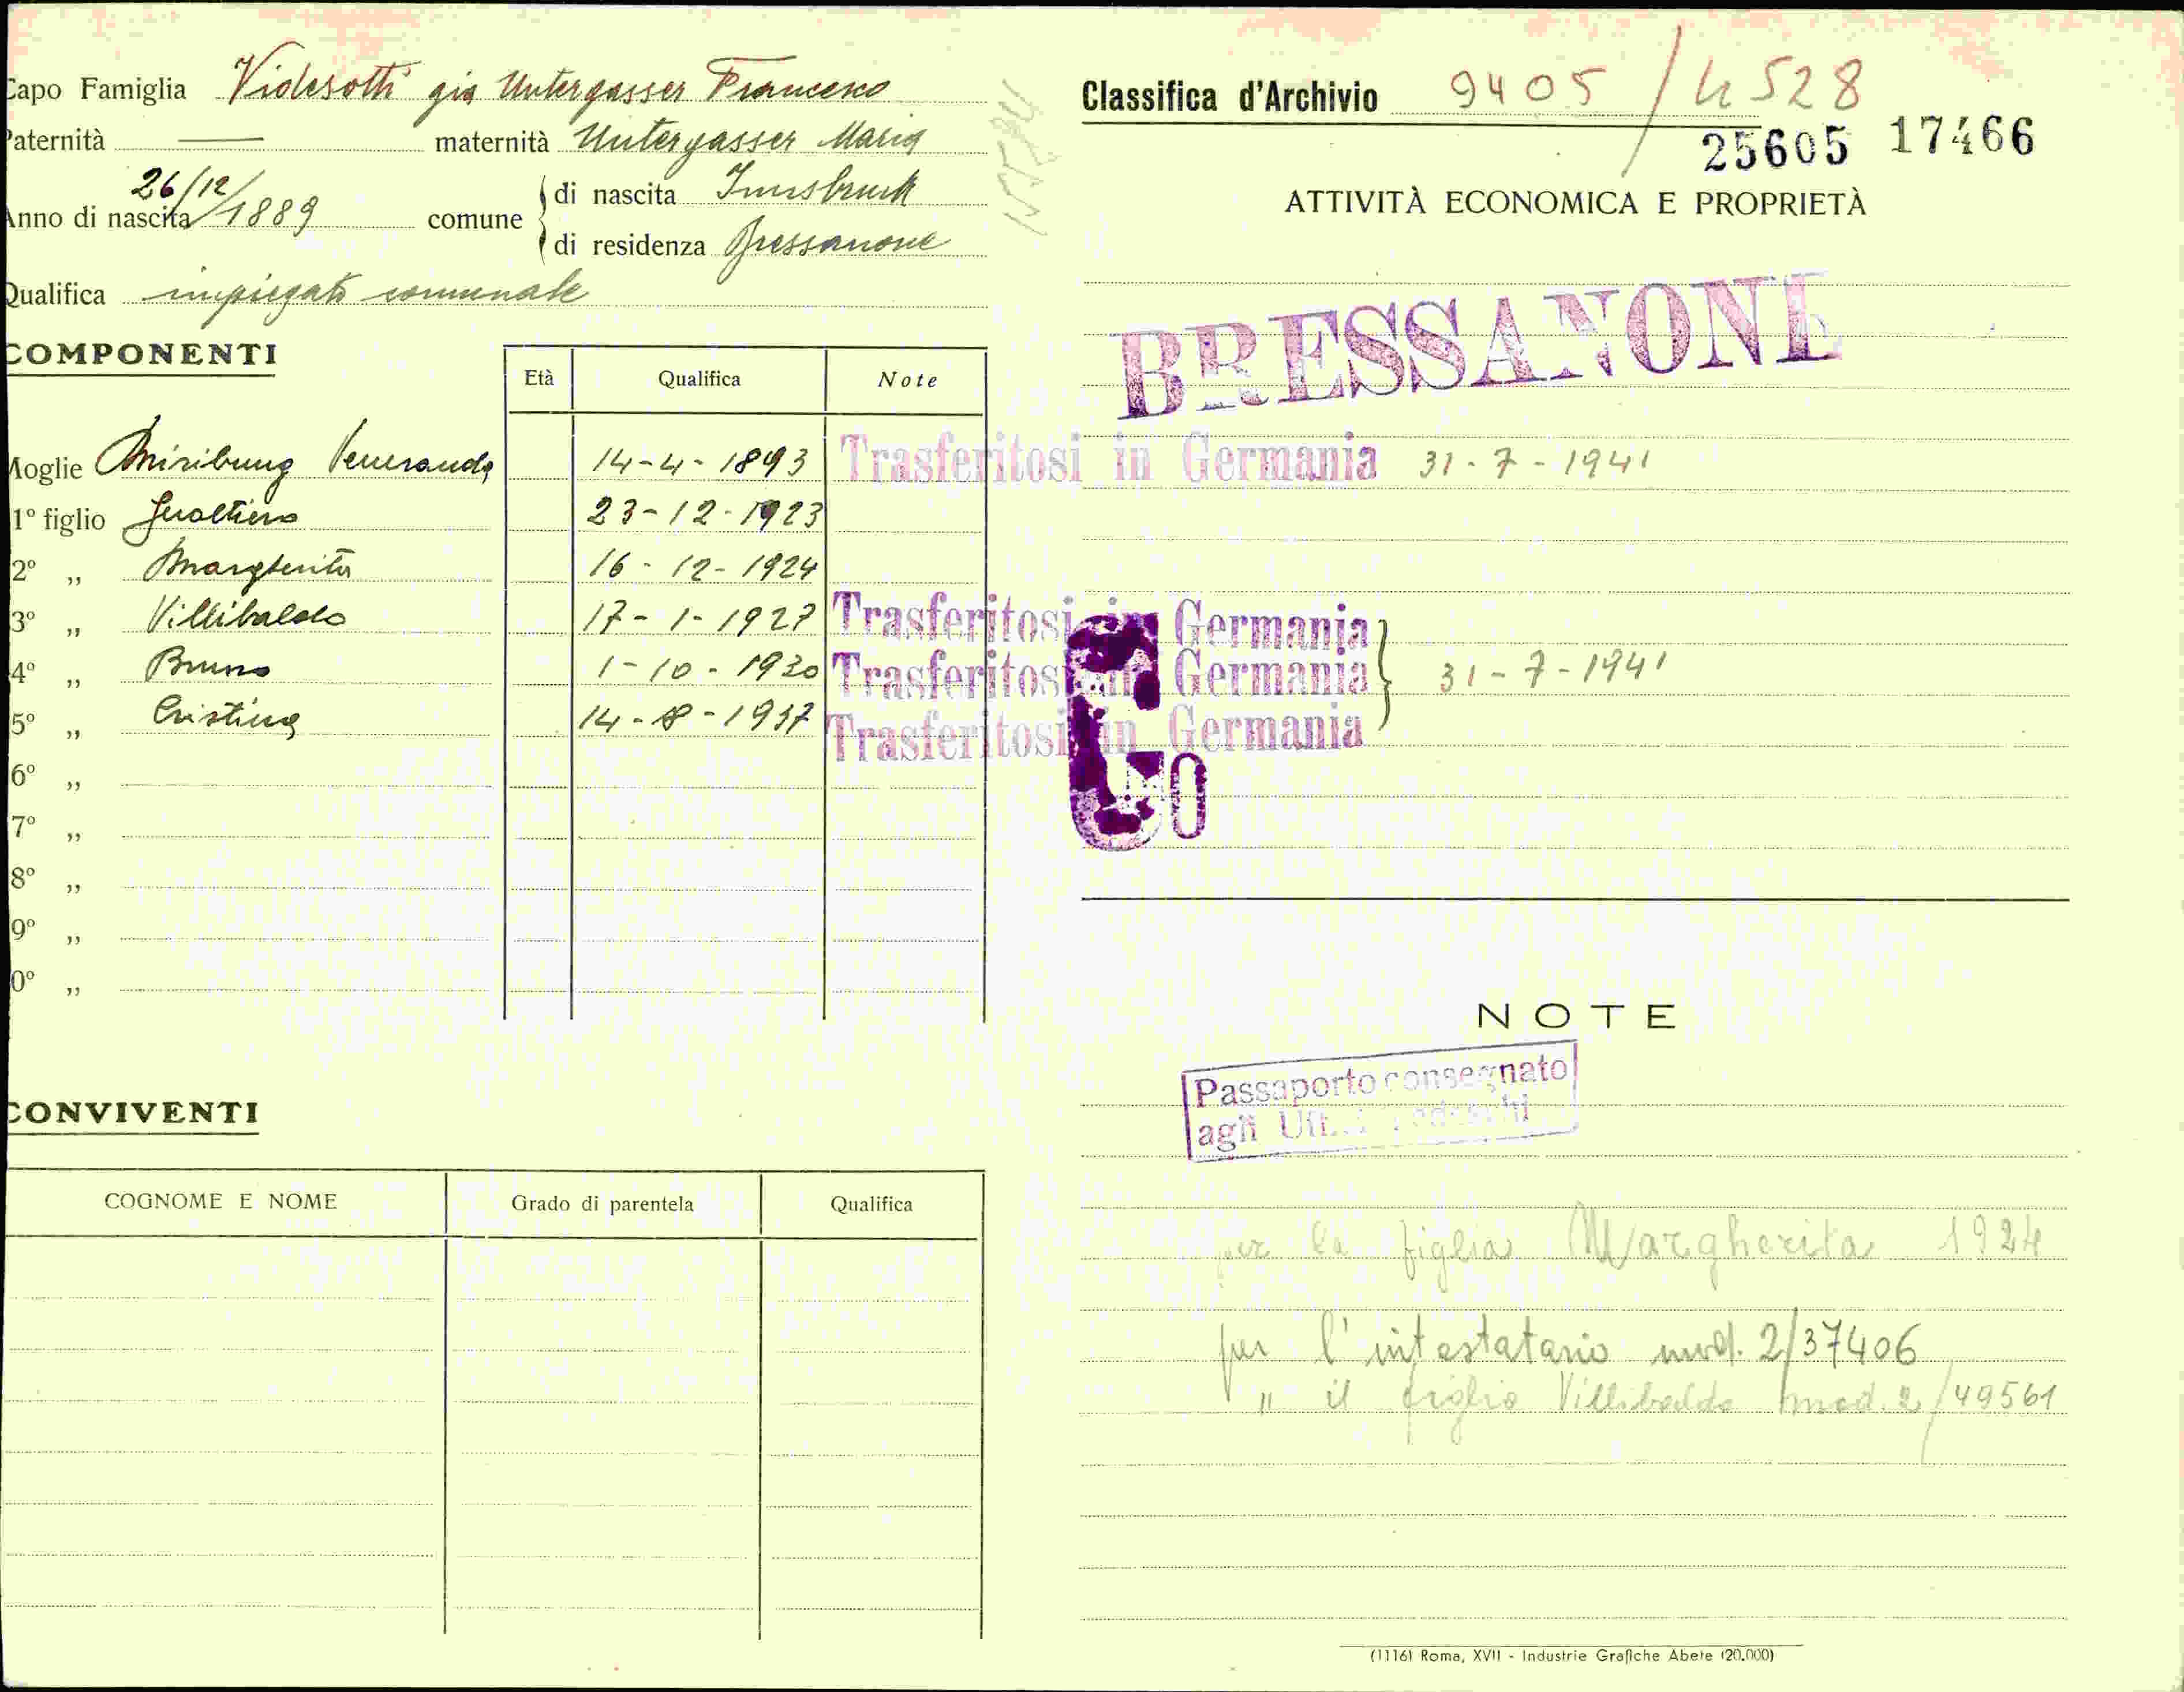 Capo Famiglia Videsotti già Untergasser Francesco
Paternità — maternità Untergasser Maria
Anno di nascita 26/12/1889 comune di nascita Innsbruck
di residenza Bressanone
Qualifica impiegato comunale
COMPONENTI
Età Qualifica Note
Moglie Miribung Veneranda 14-4-1893 Trasferitosi in Germania 31-7-1941
1º figlio Gualtiero 23-12-1923
2º „ Margherita 16-12-1924
3º „ Villibaldo 17-1-1927 Trasferitosi in Germania
4º „ Bruno 1-10-1930 Trasferitosi in Germania 31-7-1941
5º „ Cristina 14-8-1937 Trasferitosi in Germania
6º „
7º „
8º „
9º „
0º „
CONVIVENTI
COGNOME E NOME Grado di parentela Qualifica
Classifica d'Archivio 9405/4528
25605 17466
ATTIVITÀ ECONOMICA E PROPRIETÀ
BRESSANONE
NOTE
Passaporto consegnato
agli Uff. Tedeschi
per la figlia Margherita 1924
per l'intestatario mod. 2/37406
„ il figlio Villibaldo mod. 2/49561
(1116) Roma, XVII - Industrie Grafiche Abete (20.000)